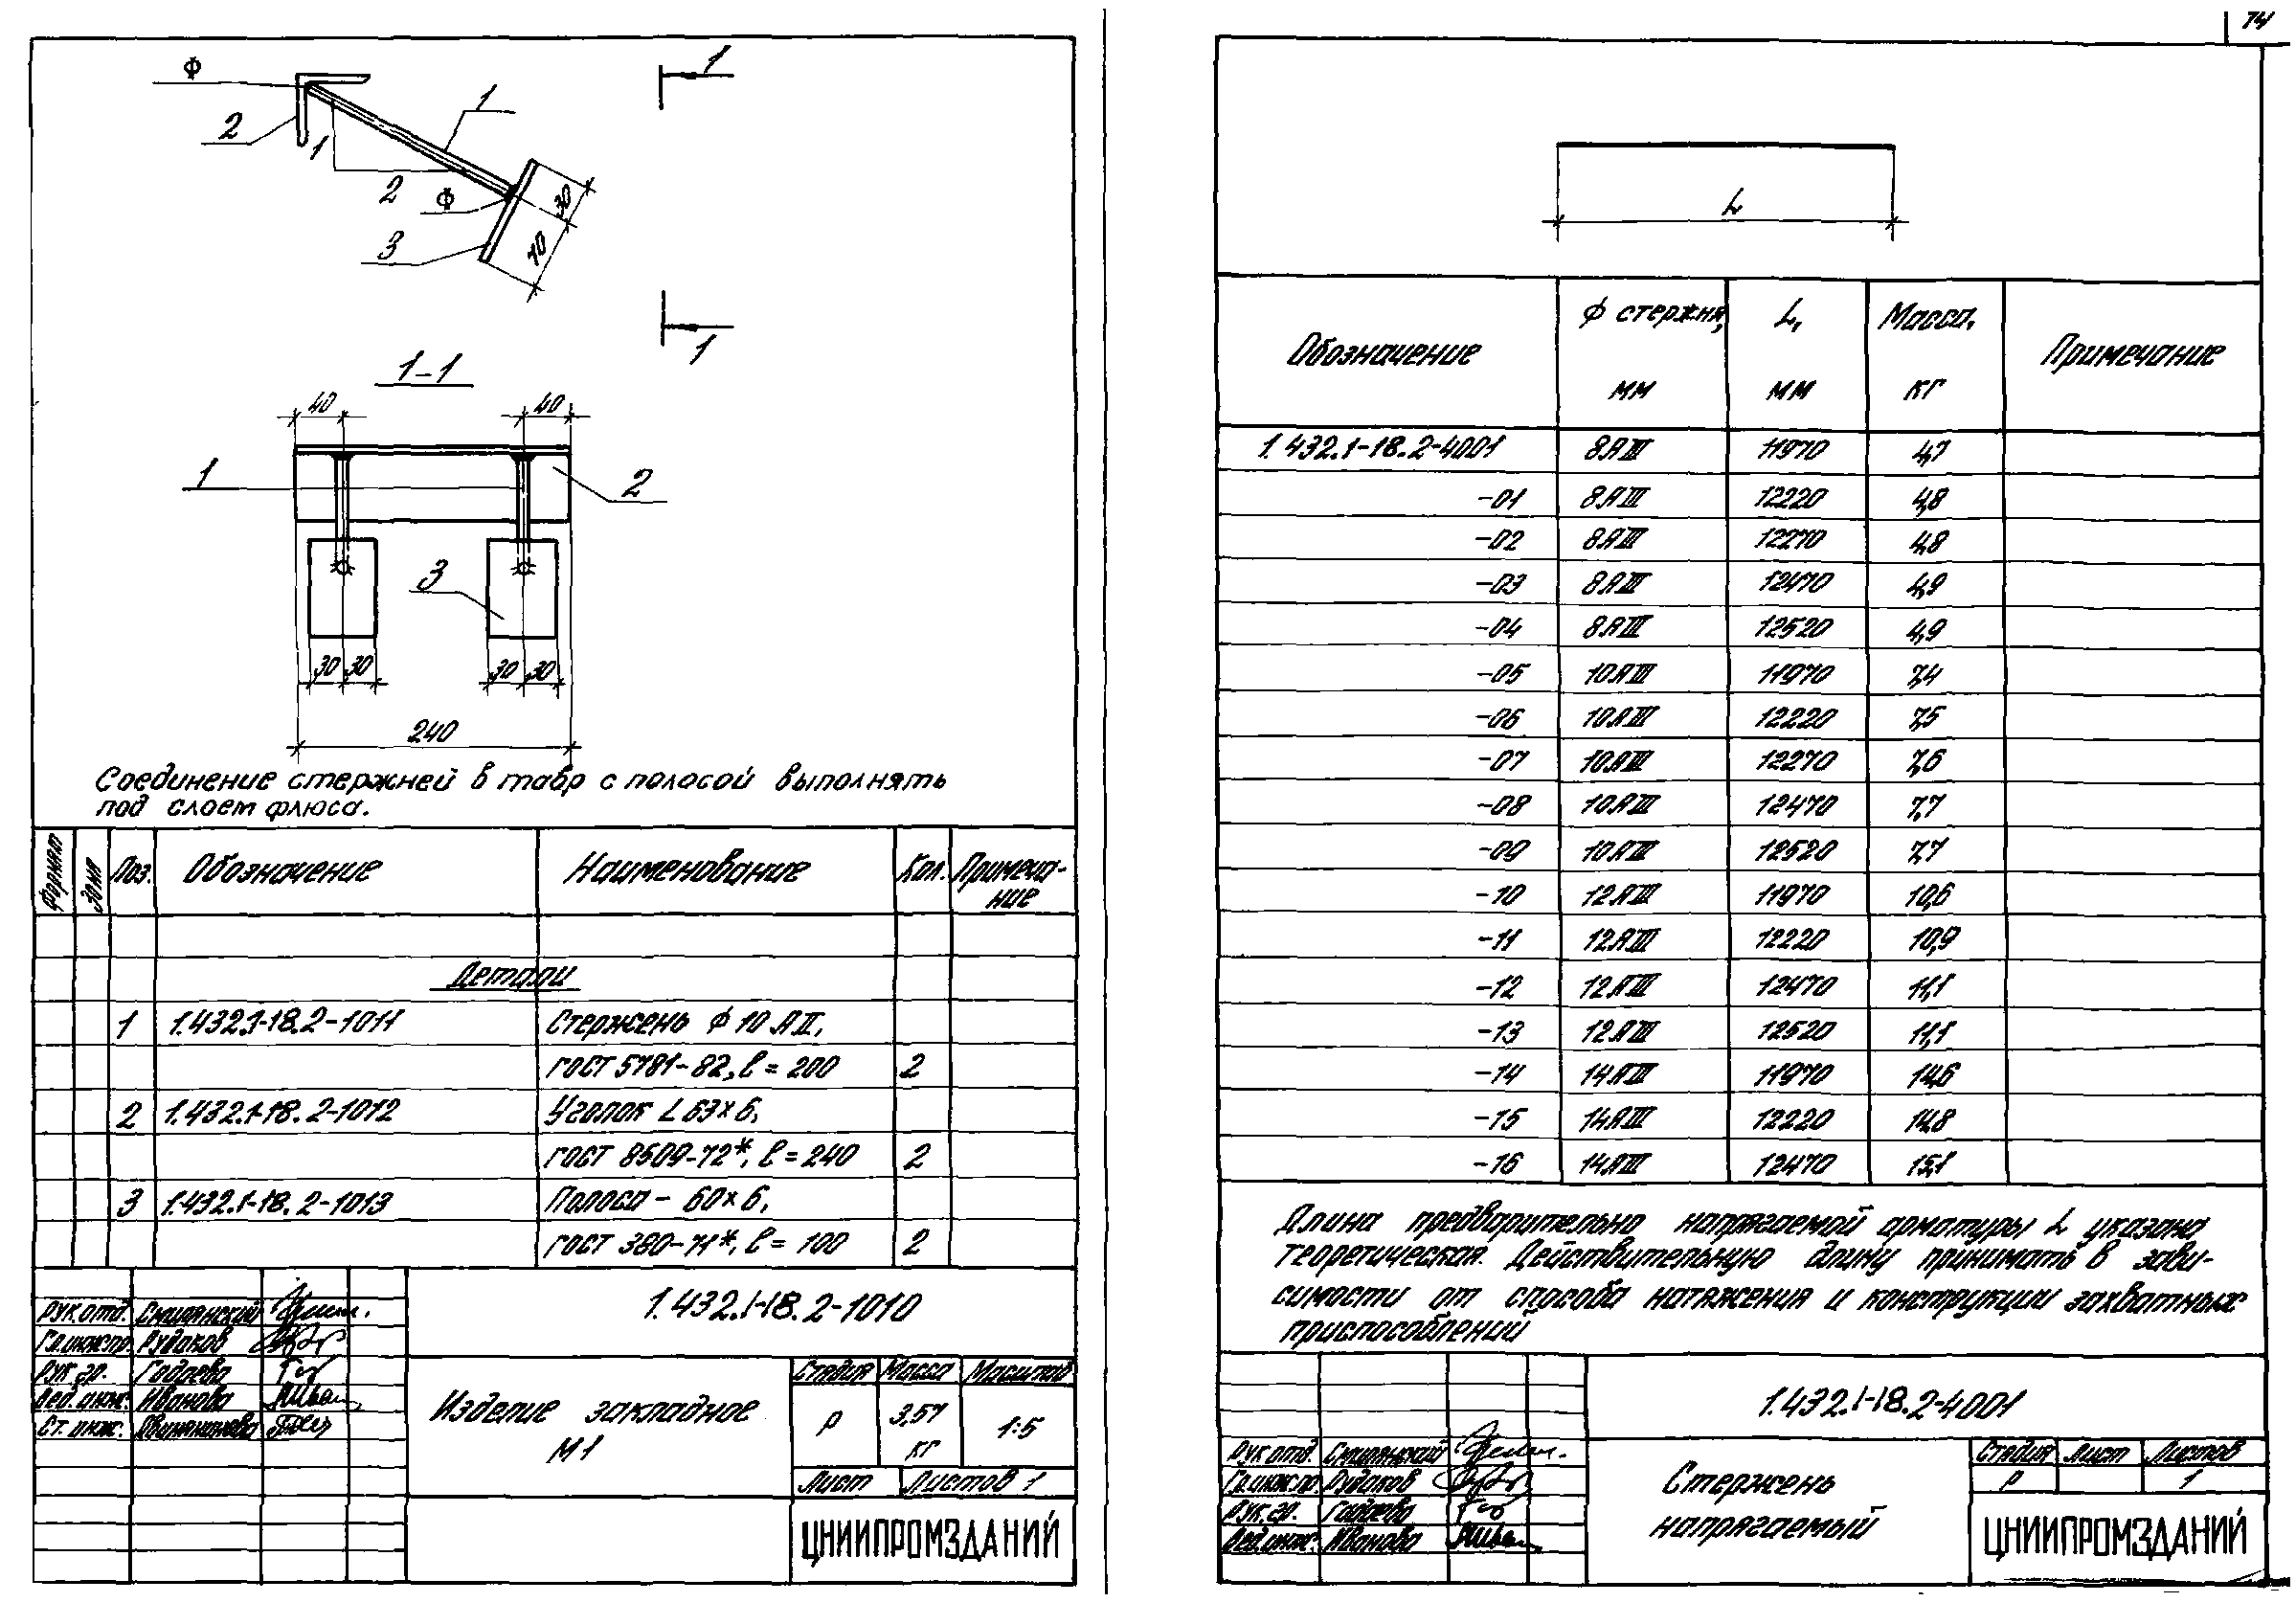 74
Ф
1
2
1
2
Ф
3
30
70
1
1
1-1
40
40
1
2
3
30 30
30 30
240
Соединение стержней в тавр с полосой выполнять
под слоем флюса.
Формат Зона Поз. Обозначение Наименование Кол. Примеча-
ние
Детали
1 1.432.1-18.2-1011 Стержень ф 10 АII,
ГОСТ 5781-82, ℓ = 200 2
2 1.432.1-18.2-1012 Уголок L 63×6,
ГОСТ 8509-72*, ℓ = 240 2
3 1.432.1-18.2-1013 Полоса - 60×6,
ГОСТ 380-71*, ℓ = 100 2
1.432.1-18.2-1010
Рук.отд. Смилянский
Гл.инж.пр. Рудаков
Рук.гр. Гадаева
Вед.инж. Иванова
Ст. инж.
Изделие закладное
М1
Стадия Масса Масштаб
Р 3,57
кг 1:5
Лист Листов 1
ЦНИИПРОМЗДАНИЙ
L
Обозначение ф стержня, мм L, мм Масса, кг Примечание
1.432.1-18.2-4001 8АIII 11970 4,7
-01 8АIII 12220 4,8
-02 8АIII 12270 4,8
-03 8АIII 12470 4,9
-04 8АIII 12520 4,9
-05 10АIII 11970 7,4
-06 10АIII 12220 7,5
-07 10АIII 12270 7,6
-08 10АIII 12470 7,7
-09 10АIII 12520 7,7
-10 12АIII 11970 10,6
-11 12АIII 12220 10,9
-12 12АIII 12470 11,1
-13 12АIII 12520 11,1
-14 14АIII 11970 14,6
-15 14АIII 12220 14,8
-16 14АIII 12470 15,1
Длина предварительно напрягаемой арматуры L указана
теоретическая. Действительную длину принимать в зави-
симости от способа натяжения и конструкции захватных
приспособлений
1.432.1-18.2-4001
Рук.отд. Смилянский
Гл.инж.пр. Рудаков
Рук.гр. Гадаева
Вед.инж. Иванова
Стержень
напрягаемый
Стадия Лист Листов
Р 1
ЦНИИПРОМЗДАНИЙ